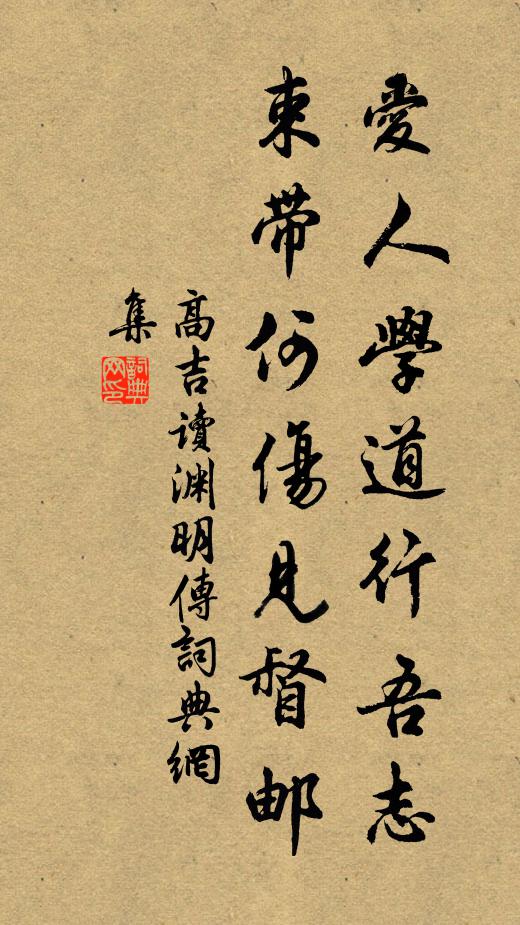 愛人學道行吾志
束帶何傷見督邮
高吉讀渊明傳詞典網
集
詞典
网印